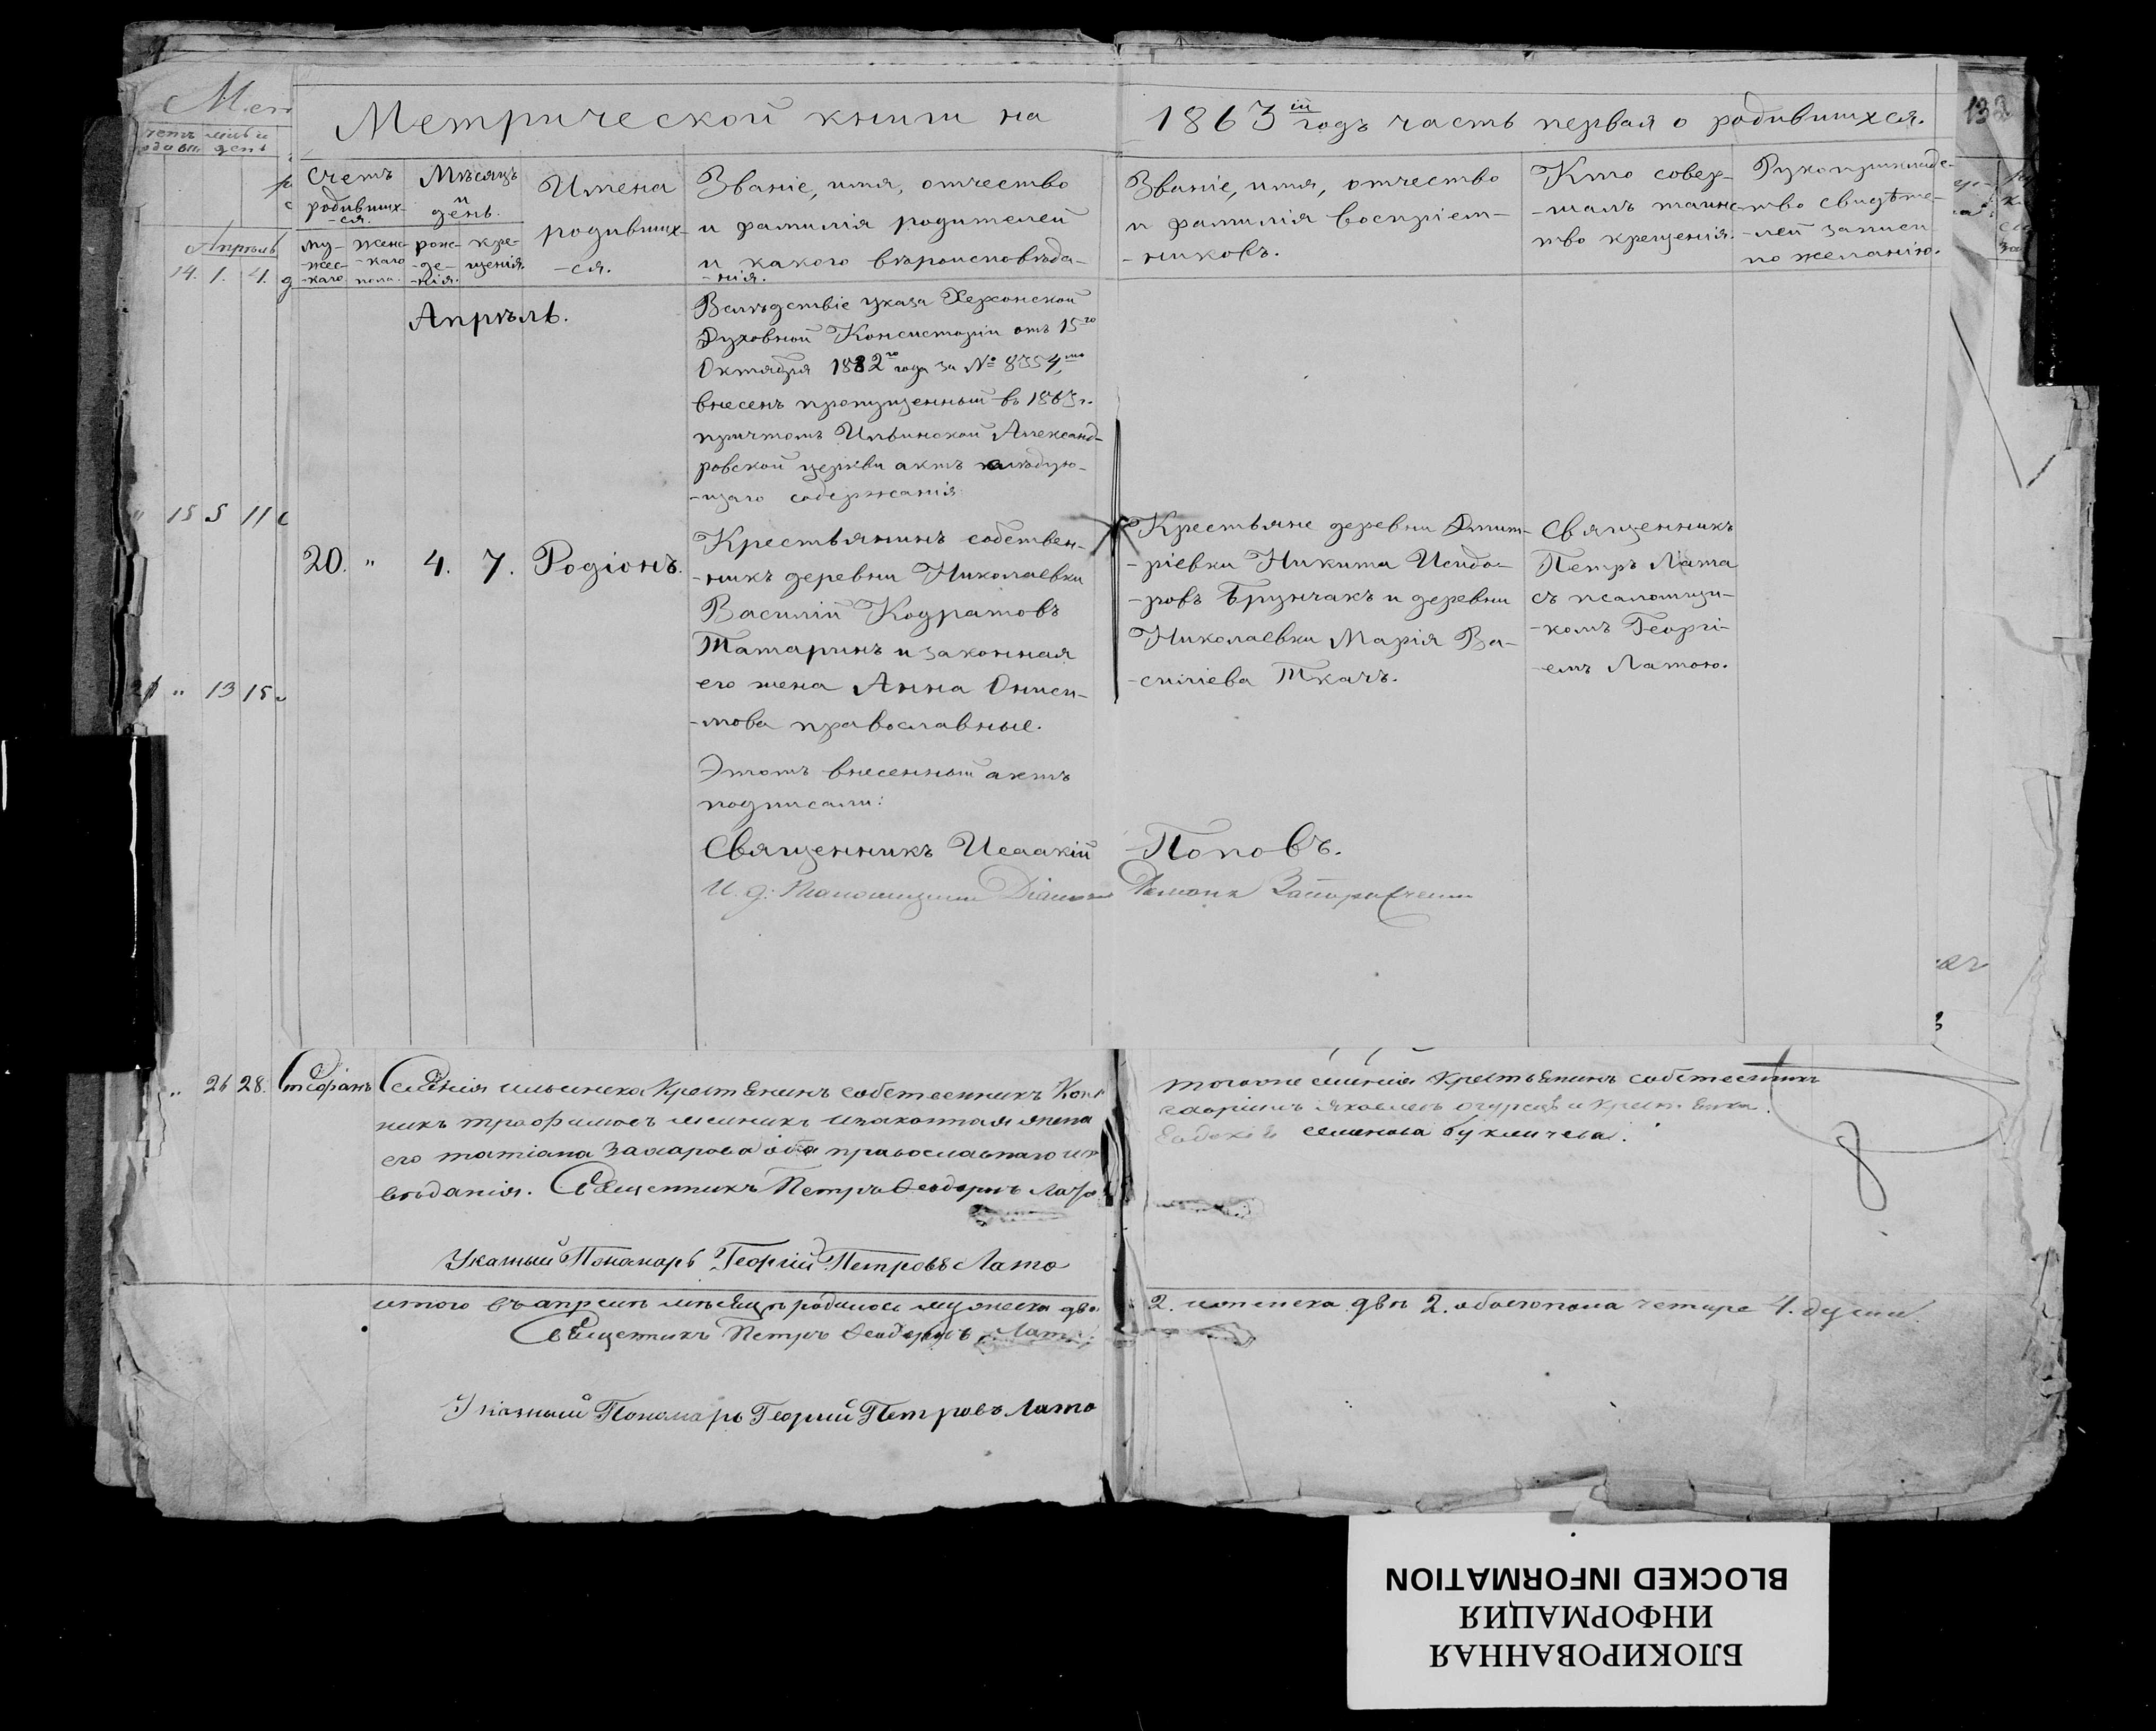 Метрической книги на 1863 ій годъ часть первая о родившихся.
132
Счетъ родивших-
-ся.
му-
-жес-
-каго
жен-
-каго
пола.
Мѣсяцъ
и
день.
рож-
-де-
-нія.
кре-
щенія.
Имена
родивших-
-ся.
Званіе, имя, отчество
и фамилія родителей
и какого вѣроисповѣда-
-нія.
Званіе, имя, отчество
и фамилія воспріем-
-никовъ.
Кто совер-
-шалъ таинс-
тво крещенія.
Рукоприкладс-
-тво свидѣте-
-лей записи
по желанію.
Апрѣль
14. 1. 4.
15 5 11
13 15
Апрѣль.
Вслѣдствіе указа Херсонской
Духовной Консисторіи отъ 15го
Октября 1882го года за № 8754,
внесенъ пропущенный въ 1863 г.
причтомъ Ильинской Александ-
ровской церкви актъ слѣдую-
-щаго содержанія
20. " 4. 7. Родіонъ.
Крестьянинъ собствен-
-никъ деревни Николаевки
Василій Кодратовъ
Татаринъ и законная
его жена Анна Ониси-
-мова православные.
Крестьяне деревни Дмит-
-ріевки Никита Исидо-
-ровъ Брунчакъ и деревни
Николаевки Марія Ва-
-силіева Ткачъ.
Священникъ
Петръ Лата
съ псаломщи-
-комъ Георгі-
-емъ Латою.
Этотъ внесенный актъ
подписали:
Священникъ Исаакій Поповъ.
И. д. Псаломщика
" 26 28. Стефанъ
Селенія ильинска Крестьянинъ собственникъ
никъ трофимовъ и законная жена
его татіана Захарова оба православнаго
вѣданія. Священникъ Петръ Феодоровъ Лата
тогоже селенія Крестьянинъ собственникъ
гавріилъ яковлевъ огурецъ и
Евдокія семенова
Указный Пономарь Георгій Петровъ Лата
итого въ апрелѣ мѣсяцѣ родилось мужеска два 2. женска двѣ 2. обоего пола четыре 4. души.
Священникъ Петръ Феодоровъ Лата
Указный Пономарь Георгий Петровъ Лата
БЛОКИРОВАННАЯ
ИНФОРМАЦИЯ
BLOCKED INFORMATION